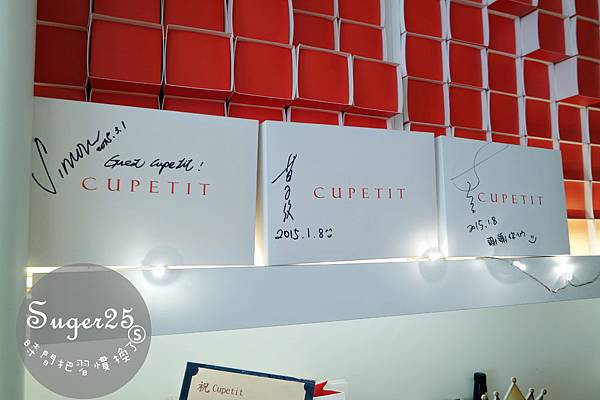 Simon 2015.3.1
Great Cupetit!
CUPETIT
CUPETIT
2015.1.8
CUPETIT
2015.1.8
謝謝你們
Suger25
時間把習慣換了
祝 Cupetit